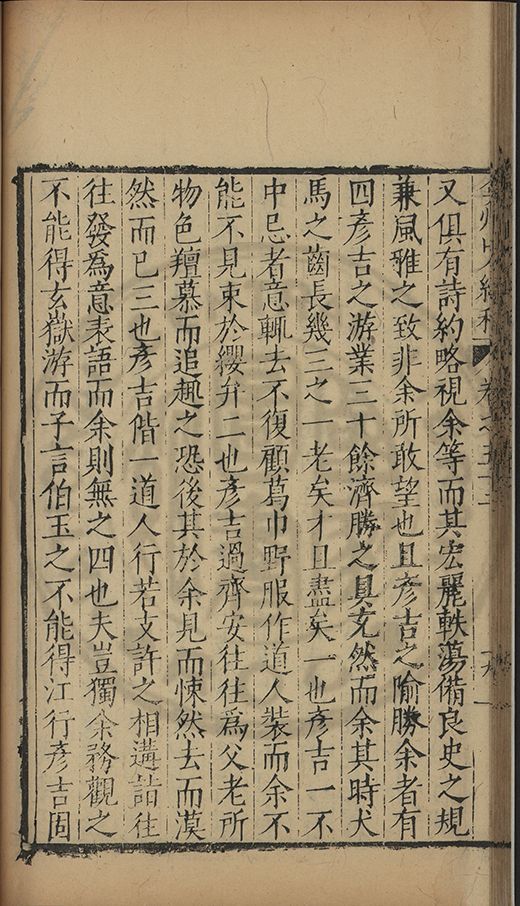 又俱有詩約略視余等而其宏麗軼蕩備良史之規
兼風雅之致非余所敢望也且彥吉之隃勝余者有
四彥吉之游業三十餘濟勝之具充然而余其時犬
馬之齒長幾三之一老矣才且盡矣一也彥吉一不
中忌者意輒去不復顧葛巾野服作道人裝而余不
能不見束於纓弁二也彥吉過齊安往往爲父老所
物色羶慕而追趣之恐後其於余見而悚然去而漠
然而已三也彥吉階一道人行若支許之相遘詰往
往發爲意表語而余則無之四也夫豈獨余務觀之
不能得玄嶽游而子言伯玉之不能得江行彥吉固